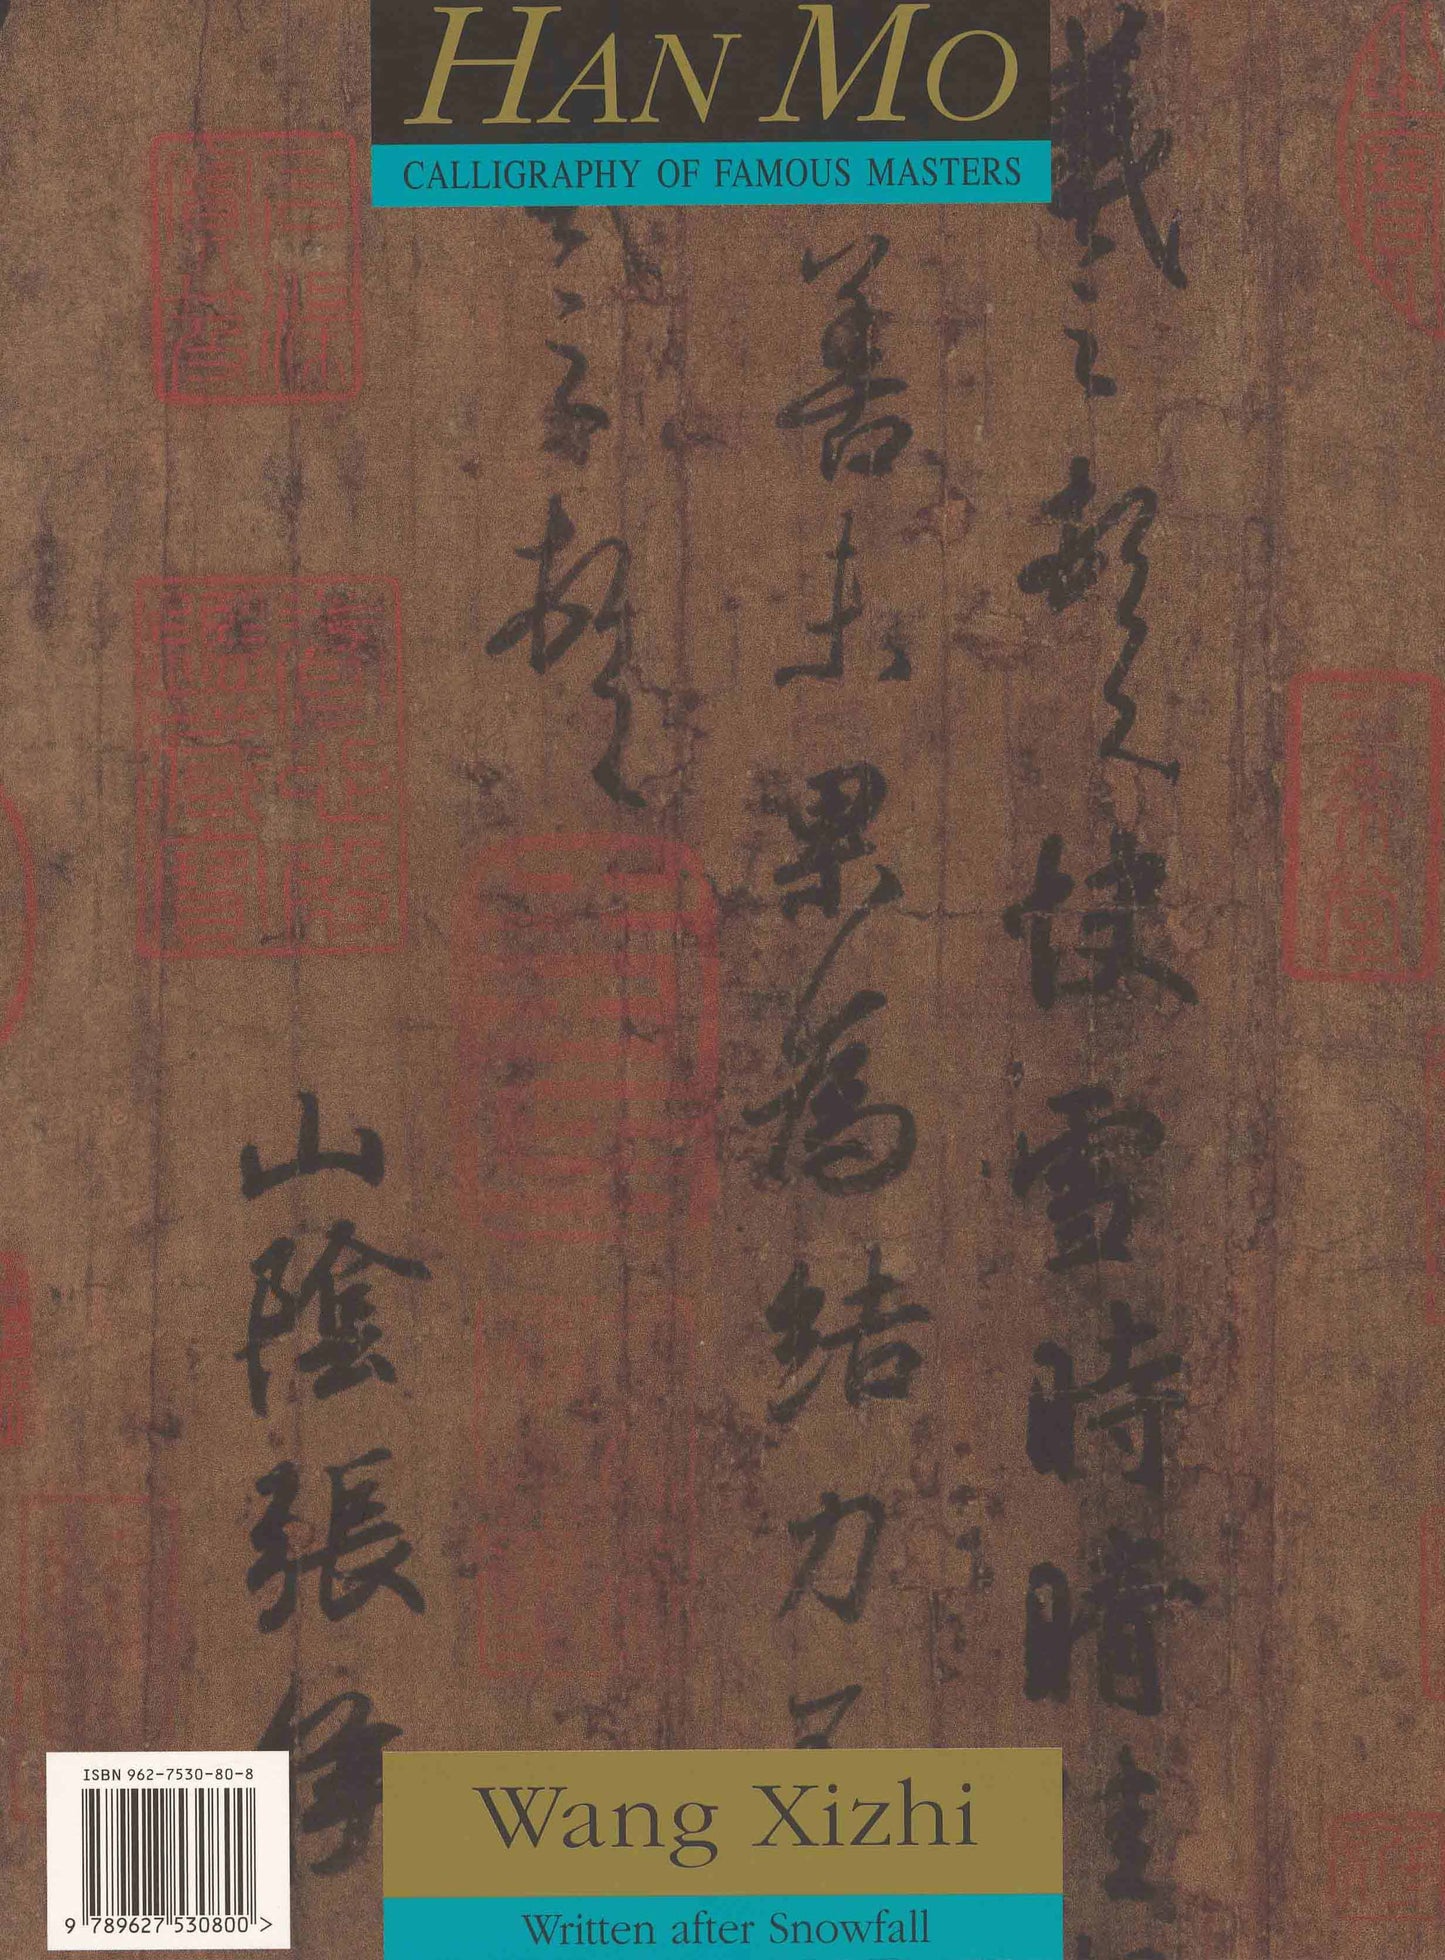 HAN MO
CALLIGRAPHY OF FAMOUS MASTERS
羲之頓首快雪時晴佳
善未果為結力不
羲之頓首
山陰張侯
ISBN 962-7530-80-8
9 789627 530800 >
Wang Xizhi
Written after Snowfall